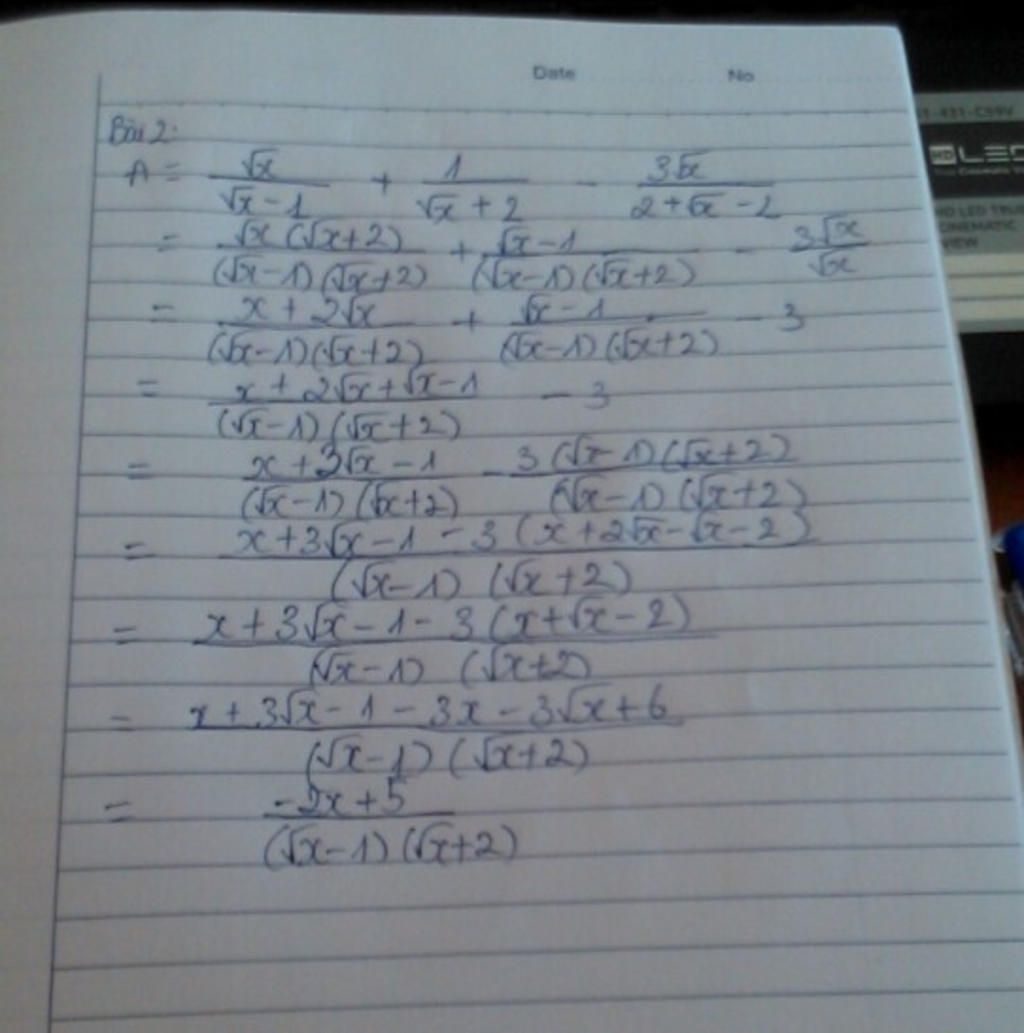 Date No
Bài 2:
A = √x/(√x - 1) + 1/(√x + 2) - 3√x/(2 + √x - 2)
= √x(√x+2)/((√x-1)(√x+2)) + (√x-1)/((√x-1)(√x+2)) - 3√x/√x
= (x + 2√x)/((√x-1)(√x+2)) + (√x-1)/((√x-1)(√x+2)) - 3
= (x + 2√x + √x - 1)/((√x-1)(√x+2)) - 3
= (x + 3√x - 1)/((√x-1)(√x+2)) - 3(√x-1)(√x+2)/((√x-1)(√x+2))
= (x + 3√x - 1 - 3(x + 2√x - √x - 2))/((√x-1)(√x+2))
= (x + 3√x - 1 - 3(x + √x - 2))/((√x-1)(√x+2))
= (x + 3√x - 1 - 3x - 3√x + 6)/((√x-1)(√x+2))
= (-2x + 5)/((√x-1)(√x+2))
LED
HD LED TRU
CINEMATIC
VIEW